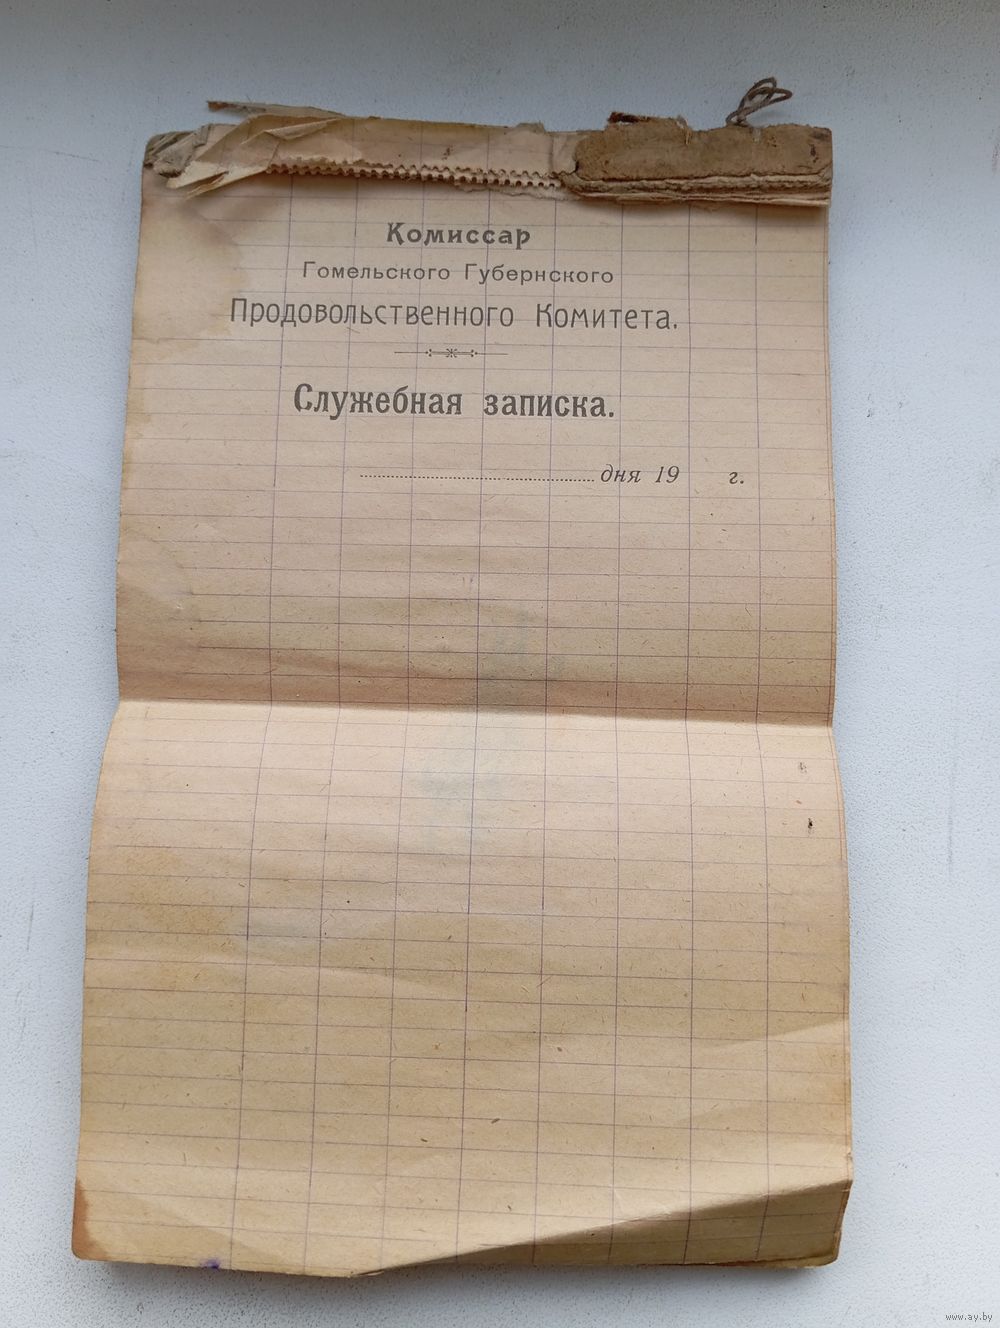 Комиссар
Гомельского Губернского
Продовольственного Комитета.
Служебная записка.
дня 19 г.
www.ay.by